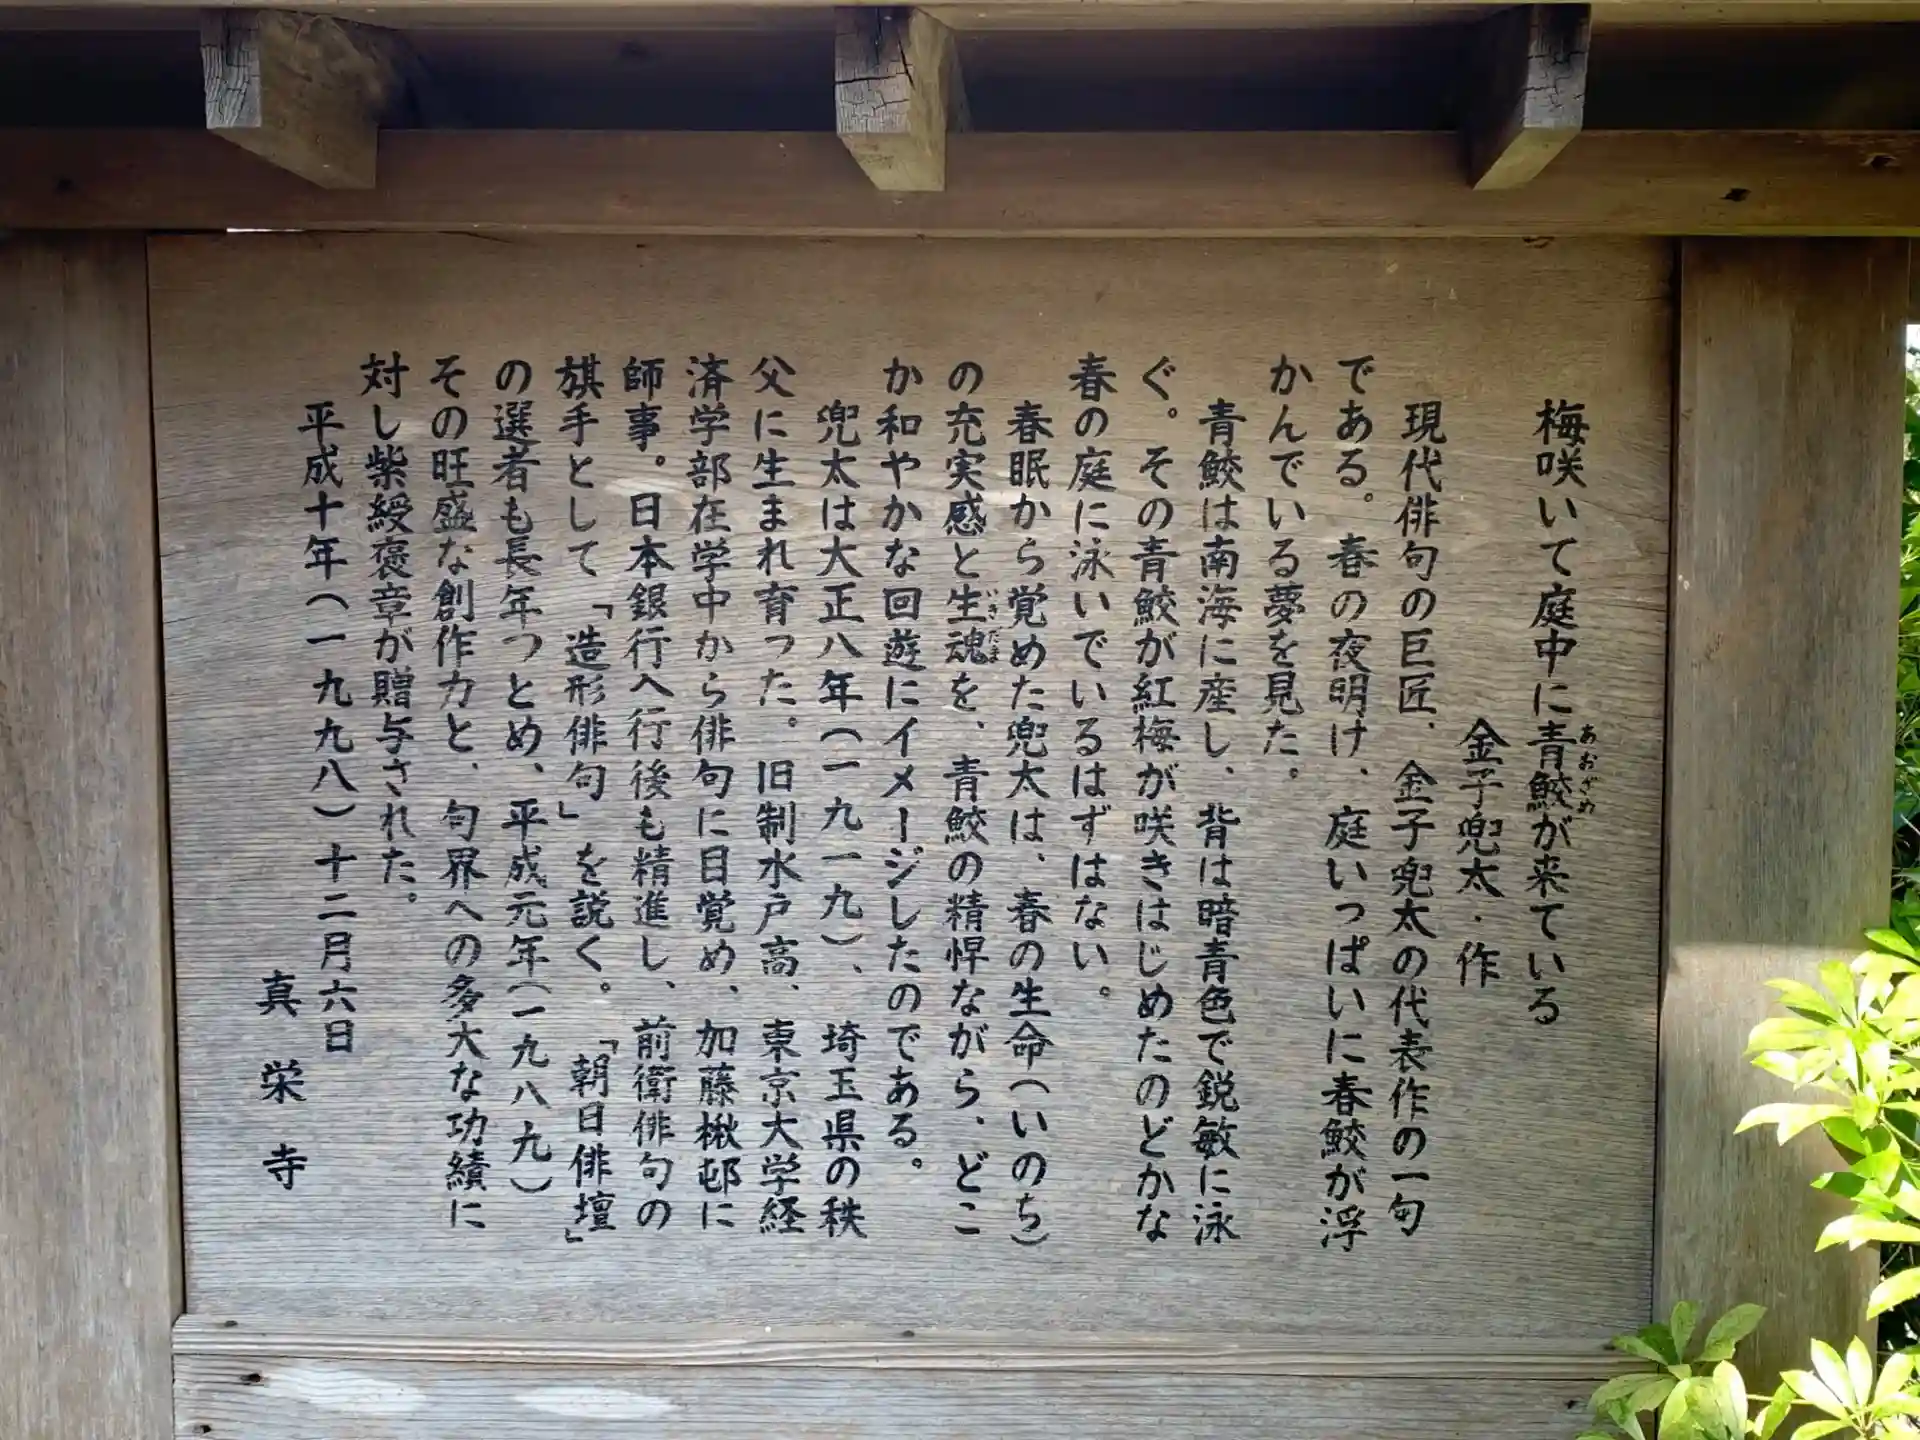 梅咲いて庭中に青鮫が来ている
あおざめ
金子兜太・作
現代俳句の巨匠、金子兜太の代表作の一句
である。春の夜明け、庭いっぱいに春鮫が浮
かんでいる夢を見た。
青鮫は南海に産し、背は暗青色で鋭敏に泳
ぐ。その青鮫が紅梅が咲きはじめたのどかな
春の庭に泳いでいるはずはない。
春眠から覚めた兜太は、春の生命(いのち)
の充実感と生魂を、青鮫の精悍ながら、どこ
いきたま
か和やかな回遊にイメージしたのである。
兜太は大正八年(一九一九)、埼玉県の秩
父に生まれ育った。旧制水戸高、東京大学経
済学部在学中から俳句に目覚め、加藤楸邨に
師事。日本銀行へ行後も精進し、前衛俳句の
旗手として「造形俳句」を説く。「朝日俳壇」
の選者も長年つとめ、平成元年(一九八九)
その旺盛な創作力と、句界への多大な功績に
対し紫綬褒章が贈与された。
平成十年(一九九八)十二月六日
真栄寺